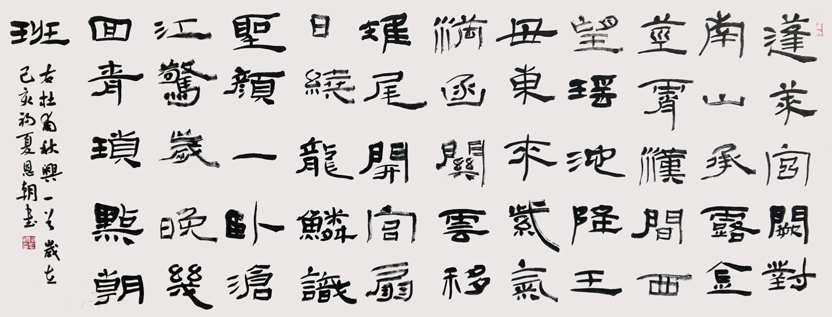 蓬萊宮闕對
南山承露金
莖霄漢間西
望瑤池降王
母東來紫氣
滿函關雲移
雉尾開宮扇
日繞龍鱗識
聖顏一臥滄
江驚歲晚幾
回青瑣點朝
班
右杜甫秋興一首歲在
己亥初夏恩朝書